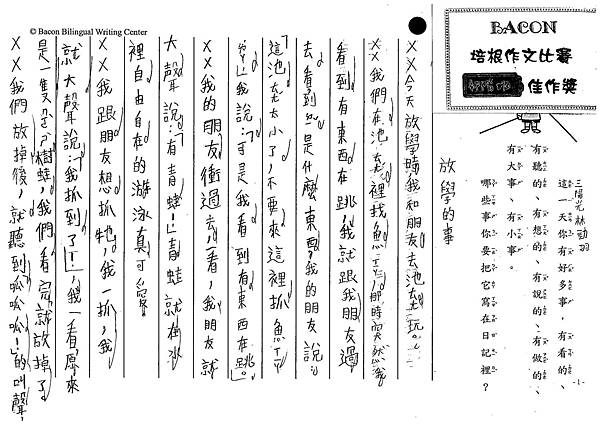 © Bacon Bilingual Writing Center
BACON
培根作文比賽
佳作獎
三陽光林勁羽
這一天你有好多事，有看的、
有聽的、有想的、有說的、有做的、
有大事、有小事。
哪些事你要把它寫在日記裡？
-1-
放學的事
××今天放學時我和朋友去池玩。
××我們在池裡找魚，那時突然我
看到有東西在跳，我就跟我朋友過
去看到是什麼東西？我的朋友說：
這池太小了，不要來這裡抓魚
我說：可是我看到有東西在跳。」
××我的朋友衝過去看，我朋友就
大聲說：「有青蛙！」青蛙就在水
裡自由自在的游泳真可愛
××我跟朋友想抓牠，我一抓，我
就大聲說：「我抓到了！」，我一看原來
是一隻樹蛙，我們看完就放掉了
××我們放掉後，就聽到呱呱呱！」的叫聲，